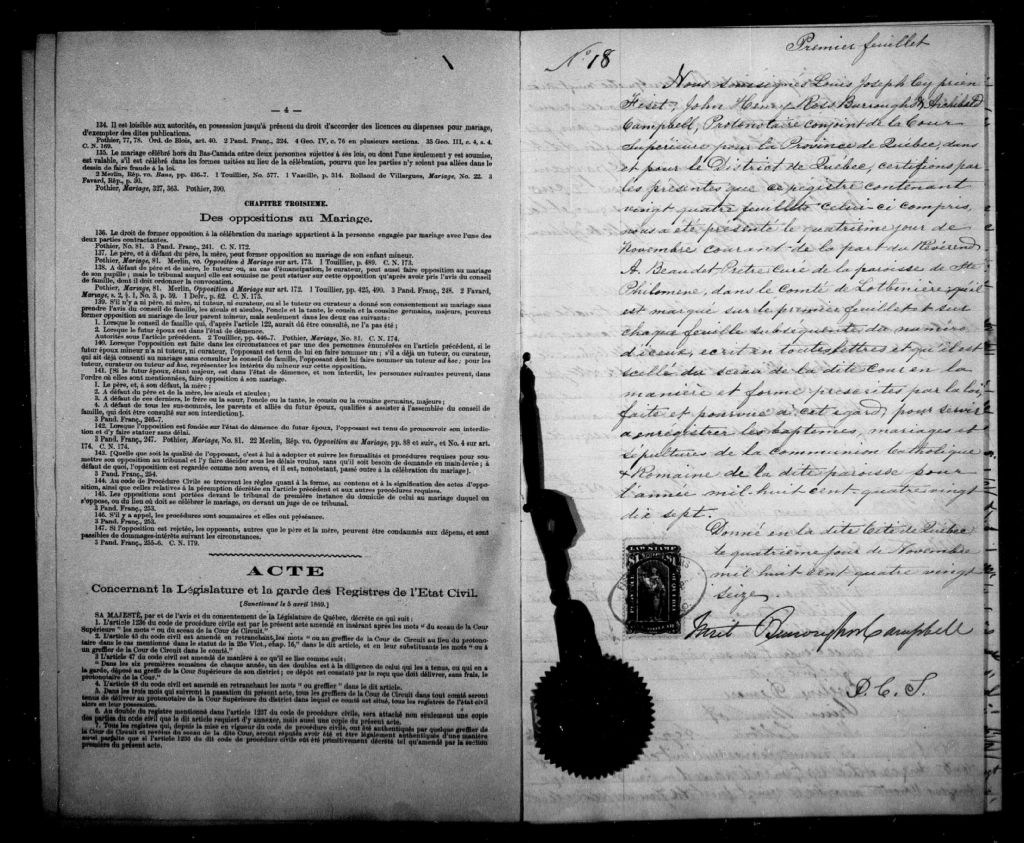 — 4 —
134. Il est loisible aux autorités, en possession jusqu'à présent du droit d'accorder des licences ou dispenses pour mariage,
d'exempter des dites publications.
Pothier, 77, 78. Ord. de Blois, art. 40. 2 Pand. Franç., 224. 4 Geo. IV, c. 76 en plusieurs sections. 35 Geo. III, c. 4, s. 4.
C. N. 169.
135. Le mariage célébré hors du Bas-Canada entre deux personnes sujettes à ses lois, ou dont l'une seulement y est soumise,
est valable, s'il est célébré dans les formes usitées au lieu de la célébration, pourvu que les parties n'y soient pas allées dans le
dessin de faire fraude à la loi.
2 Merlin, Rép. vo. Bans, pp. 436-7. 1 Touillier, No. 577. 1 Vazeille, p. 314. Rolland de Villargues, Mariage, No. 22. 3
Favard, Rép., p. 50.
Pothier, Mariage, 327, 363. Pothier, 390.
CHAPITRE TROISIEME.
Des oppositions au Mariage.
136. Le droit de former opposition à la célébration du mariage appartient à la personne engagée par mariage avec l'une des
deux parties contractantes.
Pothier, No. 81. 3 Pand. Franç., 241. C. N. 172.
137. Le père, et à défaut du père, la mère, peut former opposition au mariage de son enfant mineur.
Pothier, Mariage, 81. Merlin, vo. Opposition à Mariage sur art. 173. 1 Touillier, p. 489. C. N. 173.
138. A défaut de père et de mère, le tuteur ou, au cas d'émancipation, le curateur, peut aussi faire opposition au mariage
de son pupille; mais le tribunal auquel elle est soumise ne peut statuer sur cette opposition qu'après avoir pris l'avis du conseil
de famille, dont il doit ordonner la convocation.
Pothier, Mariage, 81. Merlin, Opposition à Mariage sur art. 172. 1 Touillier, pp. 425, 490. 3 Pand. Franç., 248. 2 Favard,
Mariage, s. 2, § 1, No. 3, p. 59. 1 Delv., p. 62. C. N. 175.
139. S'il n'y a ni père, ni mère, ni tuteur, ni curateur, ou si le tuteur ou curateur a donné son consentement au mariage sans
prendre l'avis du conseil de famille, les aïeuls et aïeules, l'oncle et la tante, le cousin et la cousine germains, majeurs, peuvent
former opposition au mariage de leur parent mineur, mais seulement dans les deux cas suivants:
1. Lorsque le conseil de famille qui, d'après l'article 122, aurait dû être consulté, ne l'a pas été;
2. Lorsque le futur époux est dans l'état de démence.
Autorités sous l'article précédent. 2 Touillier, pp. 446-7. Pothier, Mariage, No. 81. C. N. 174.
140. Lorsque l'opposition est faite dans les circonstances et par une des personnes énumérées en l'article précédent, si le
futur époux mineur n'a ni tuteur, ni curateur, l'opposant est tenu de lui en faire nommer un; s'il a déjà un tuteur, ou curateur,
qui ait déjà consenti au mariage sans consulter le conseil de famille, l'opposant doit lui faire nommer un tuteur ad hoc, pour les
tuteur, curateur ou tuteur ad hoc, représenter les intérêts du mineur sur cette opposition.
141. [Si le futur époux, étant majeur, est dans l'état de démence, et non interdit, les personnes suivantes peuvent, dans
l'ordre où elles sont mentionnées, faire opposition à son mariage.
1. Le père, et, à son défaut, la mère;
2. A défaut du père et de la mère, les aïeuls et aïeules;
3. A défaut de ces derniers, le frère ou la sœur, l'oncle ou la tante, le cousin ou la cousine germains, majeurs;
4. A défaut de tous les sus-nommés, les parents et alliés du futur époux, qualifiés à assister à l'assemblée du conseil de
famille, qui doit être consulté sur son interdiction].
3 Pand. Franç., 246-7.
142. Lorsque l'opposition est fondée sur l'état de démence du futur époux, l'opposant est tenu de promouvoir son interdic-
tion et d'y faire statuer sans délai.
3 Pand. Franç., 247. Pothier, Mariage, No. 81. 22 Merlin, Rép. vo. Opposition au Mariage, pp. 88 et suiv., et No. 4 sur art.
174. C. N. 174.
143. [Quelque que soit la qualité de l'opposant, c'est à lui à adopter et suivre les formalités et procédures requises pour sou-
mettre son opposition au tribunal et l'y faire décider sous les délais voulus, sans qu'il soit besoin de demande en main-levée; à
défaut de quoi, l'opposition est regardée comme non avenue, et il est, nonobstant, passé outre à la célébration du mariage].
3 Pand. Franç., 254.
144. Au code de Procédure Civile se trouvent les règles quant à la forme, au contenu et à la signification des actes d'oppo-
sition, ainsi que celles relatives à la péremption décrétée en l'article précédent et aux autres procédures requises.
145. Les oppositions sont portées devant le tribunal de première instance du domicile de celui au mariage duquel on
s'oppose, ou du lieu où doit se célébrer le mariage, ou devant un juge de ce tribunal.
3 Pand. Franç., 253.
146. S'il y a appel, les procédures sont sommaires et elles ont préséance.
3 Pand. Franç., 253.
147. Si l'opposition est rejetée, les opposants, autres que le père et la mère, peuvent être condamnés aux dépens, et sont
passibles de dommages-intérêts suivant les circonstances.
3 Pand. Franç., 255-6. C. N. 179.
ACTE
Concernant la Législature et la garde des Registres de l'Etat Civil.
(Sanctionné le 5 avril 1869.)
SA MAJESTÉ, par et de l'avis et du consentement de la Législature de Québec, décrète ce qui suit:
1. L'article 1236 du code de procédure civile est par le présent acte amendé en insérant après les mots "du sceau de la Cour
Supérieure" les mots "ou du sceau de la Cour de Circuit."
2. L'article 45 du code civil est amendé en retranchant les mots "ou au greffier de la Cour de Circuit au lieu du protono-
taire dans le cas mentionné dans le statut de la 25e Vict., chap. 16," dans le dit article, et en leur substituant les mots "ou à
un greffier de la Cour de Circuit dans le comté."
3 L'article 47 du code civil est amendé de manière à ce qu'il se lise comme suit:
"Dans les six premières semaines de chaque année, un des doubles est à la diligence de celui qui les a tenus, ou qui en a
la garde, déposé au greffe de la Cour Supérieure de son district; ce dépôt est constaté par le reçu que doit délivrer, sans frais, le
protonotaire de la Cour."
4. L'article 48 du code civil est amendé en retranchant les mots "ou greffier" dans le dit article.
5. Dans les trois mois qui suivront la passation du présent acte, tous les greffiers de la Cour de Circuit dans tout comté seront
tenus de délivrer au protonotaire de la Cour Supérieure du district dans lequel ce comté est situé, tous les registres de l'état civil
alors en leur possession.
6. Au double du registre mentionné dans l'article 1237 du code de procédure civile, sera attaché non seulement une copie
des parties du code civil que le dit article requiert d'y annexer, mais aussi une copie du présent acte.
7. Tous les registres qui, depuis la mise en vigueur du code de procédure civile, ont été authentiqués par quelque greffier de
la Cour de Circuit et revêtus du sceau de la dite Cour, seront réputés avoir été et être légalement authentiqués d'une manière
aussi parfaite que si l'article 1236 du dit code de procédure civile eût été primitivement décrété tel qu'amendé par la section
première du présent acte.
Premier feuillet
No 18
Nous soussignés Louis Joseph Cyprien
Fiset, John Henry Ross Burroughs & Archibald
Campbell, Protonotaire conjoint de la Cour
Supérieure pour la Province de Québec, dans
et pour le District de Québec, certifions par
les présentes que ce régistre contenant
vingt quatre feuillets celui-ci compris,
nous a été présenté le quatrième jour de
Novembre courant de la part du Révérend
A. Beaudet Prêtre Curé de la paroisse de Ste
Philomène, dans le Comté de Lotbinière; qu'il
est marqué sur le premier feuillet et sur
chaque feuille subséquente du numéro
d'iceux, écrit en toutes lettres et qu'il est
scellé du sceau de la dite cour en la
manière et forme prescrites par la loi,
faite et pourvue à cet égard pour servir
à enregistrer les baptêmes, mariages et
sépultures de la Communion Catholique
& Romaine de la dite paroisse pour
l'année mil-huit cent-quatre vingt
dix sept.
Donné en la dite Cité de Québec
le quatrième jour de Novembre
mil huit cent quatre vingt
seize.
LAW STAMP
Fiset Burroughs Campbell
P. C. S.